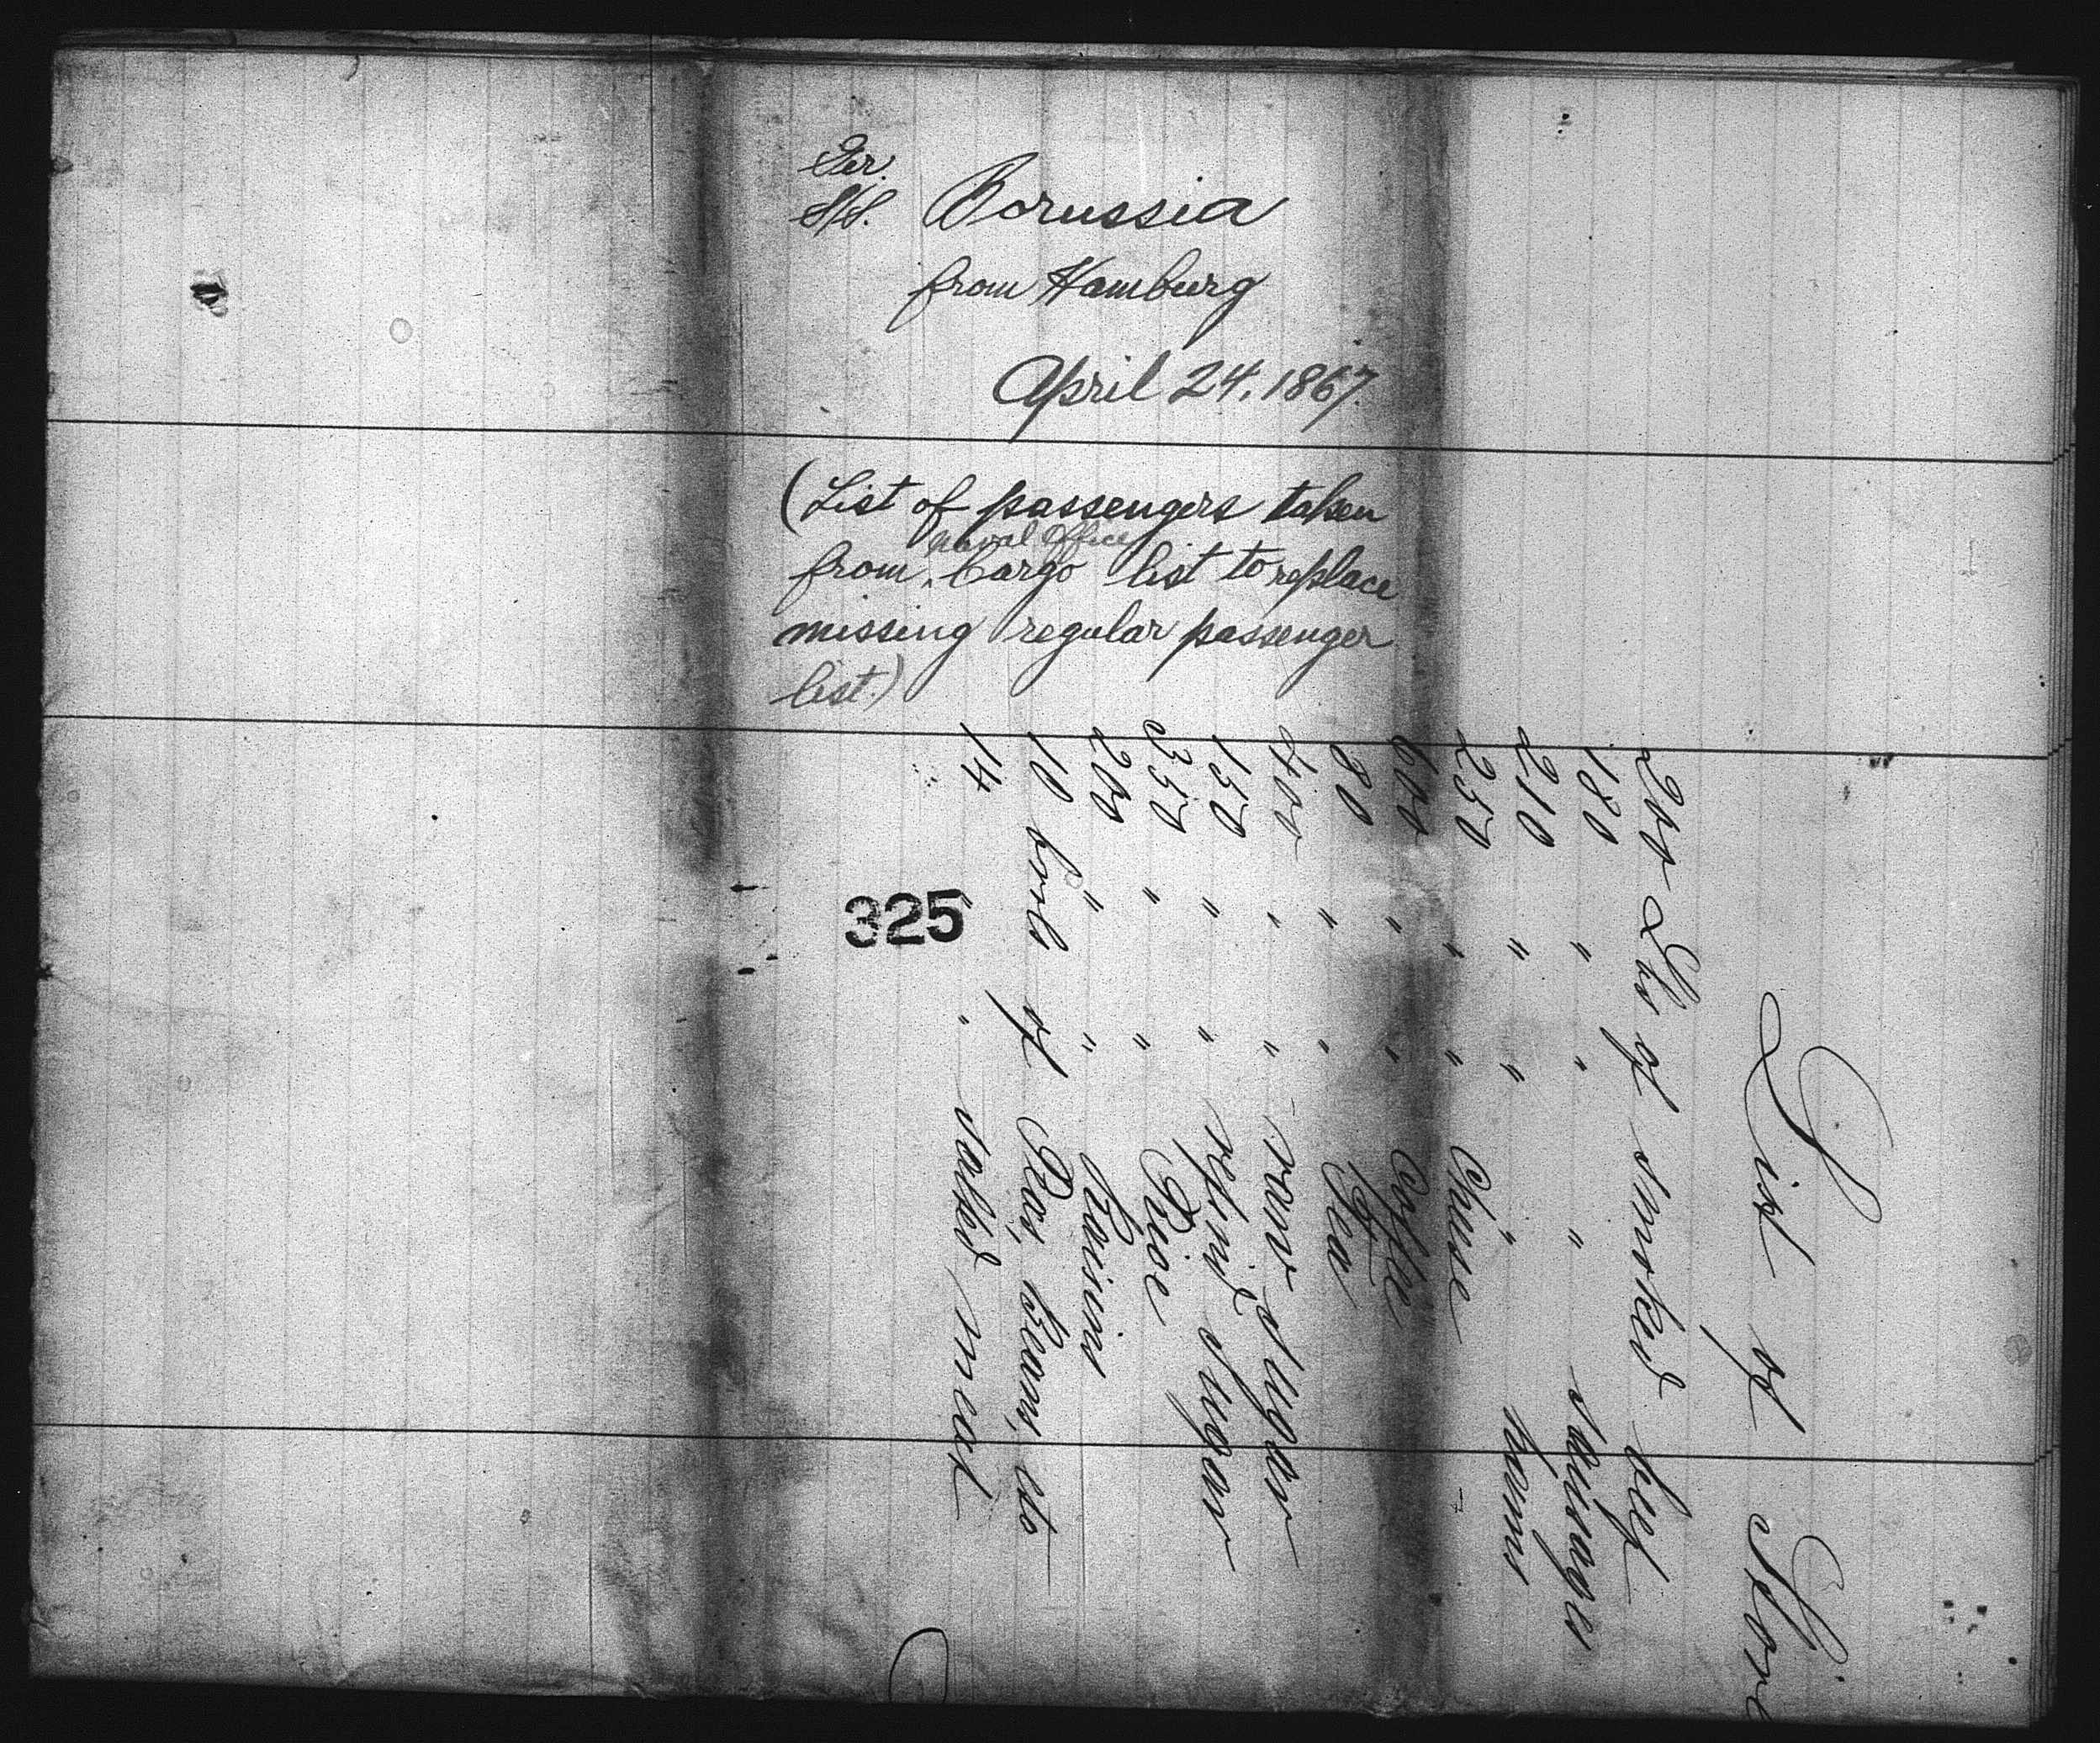 Ger.
S/S. Borussia
from Hamburg
April 24, 1867.
(List of passengers taken
Naval Office
from ^ Cargo list to replace
missing regular passenger
list.)
325
List of Store
200 Lbs of smoked beef
180 " " " sausages
210 " " " hams
250 " " Chiese
600 " " Coffee
80 " " Tea
400 " " raw sugar
150 " " refind sugar
350 " " Rice
200 " " Raisins
10 brrls of Peas, Beans, etc
14 " " salted meat